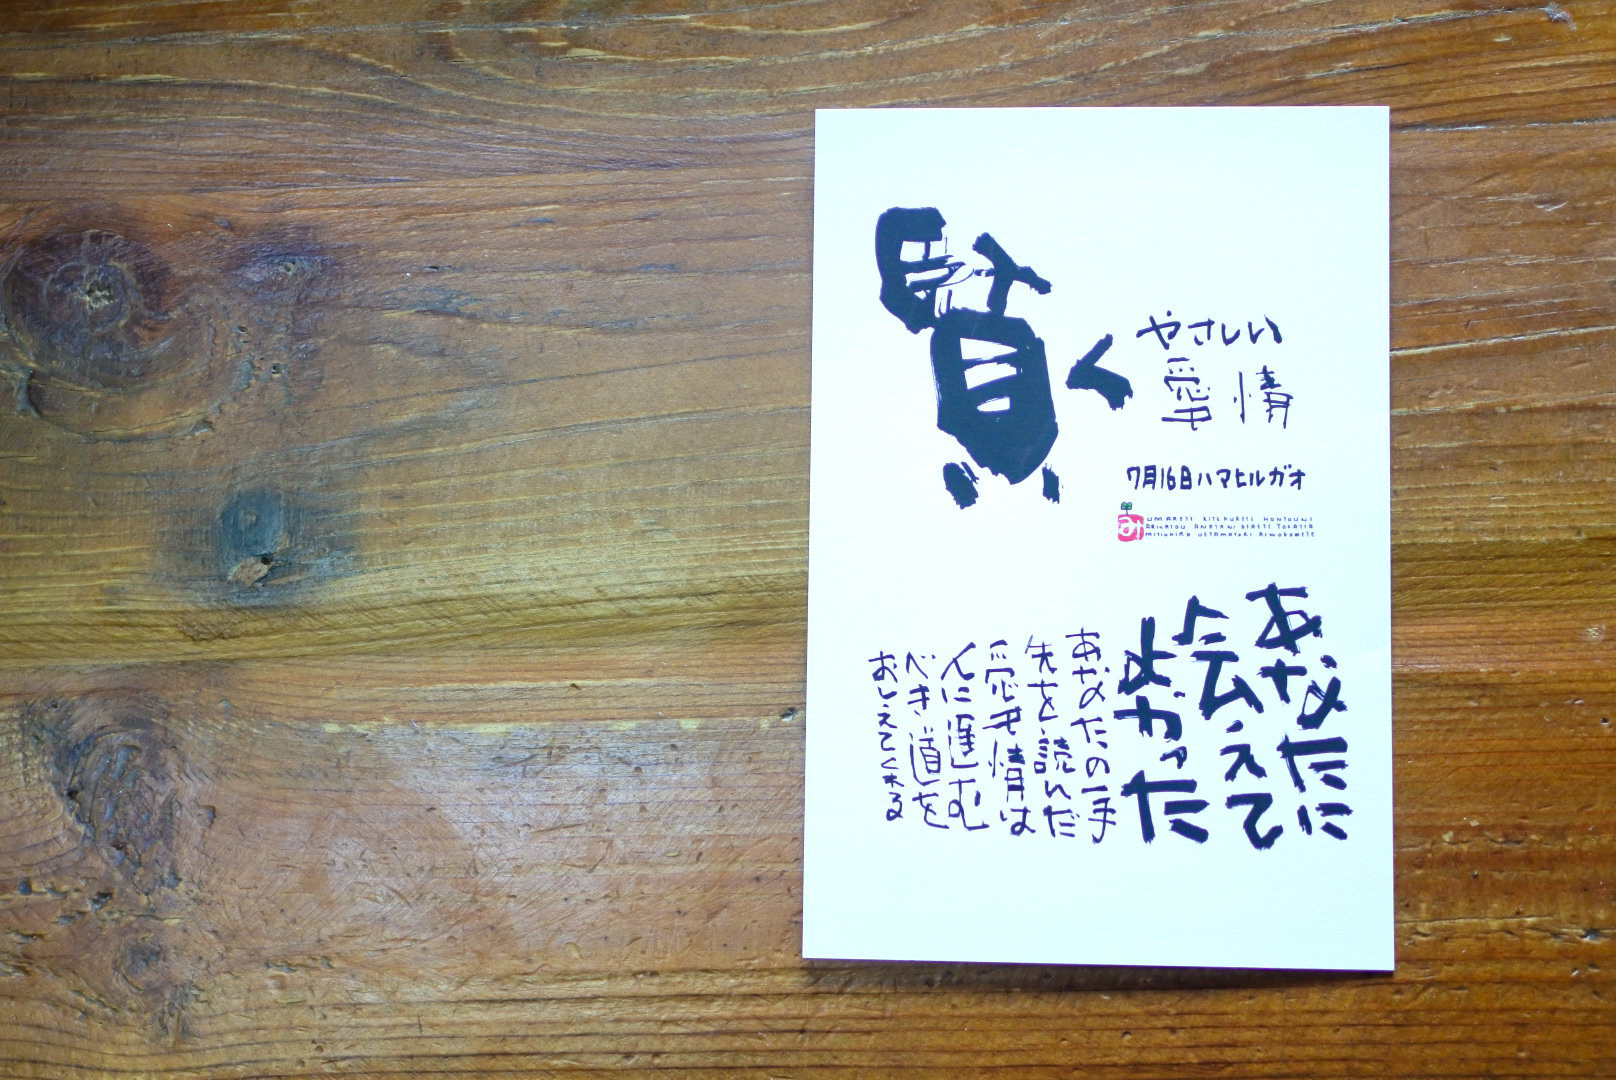 賢く
やさしい
愛情
7月16日ハマヒルガオ
み
UMARETE KITEKURETE HONTOUNI
ARIGATOU ANATANI DEAETE YOKATTA
あなたに
会えて
よかった
あなたの一手
先を読んだ
愛情は
人に進む
べき道を
おしえてくれる